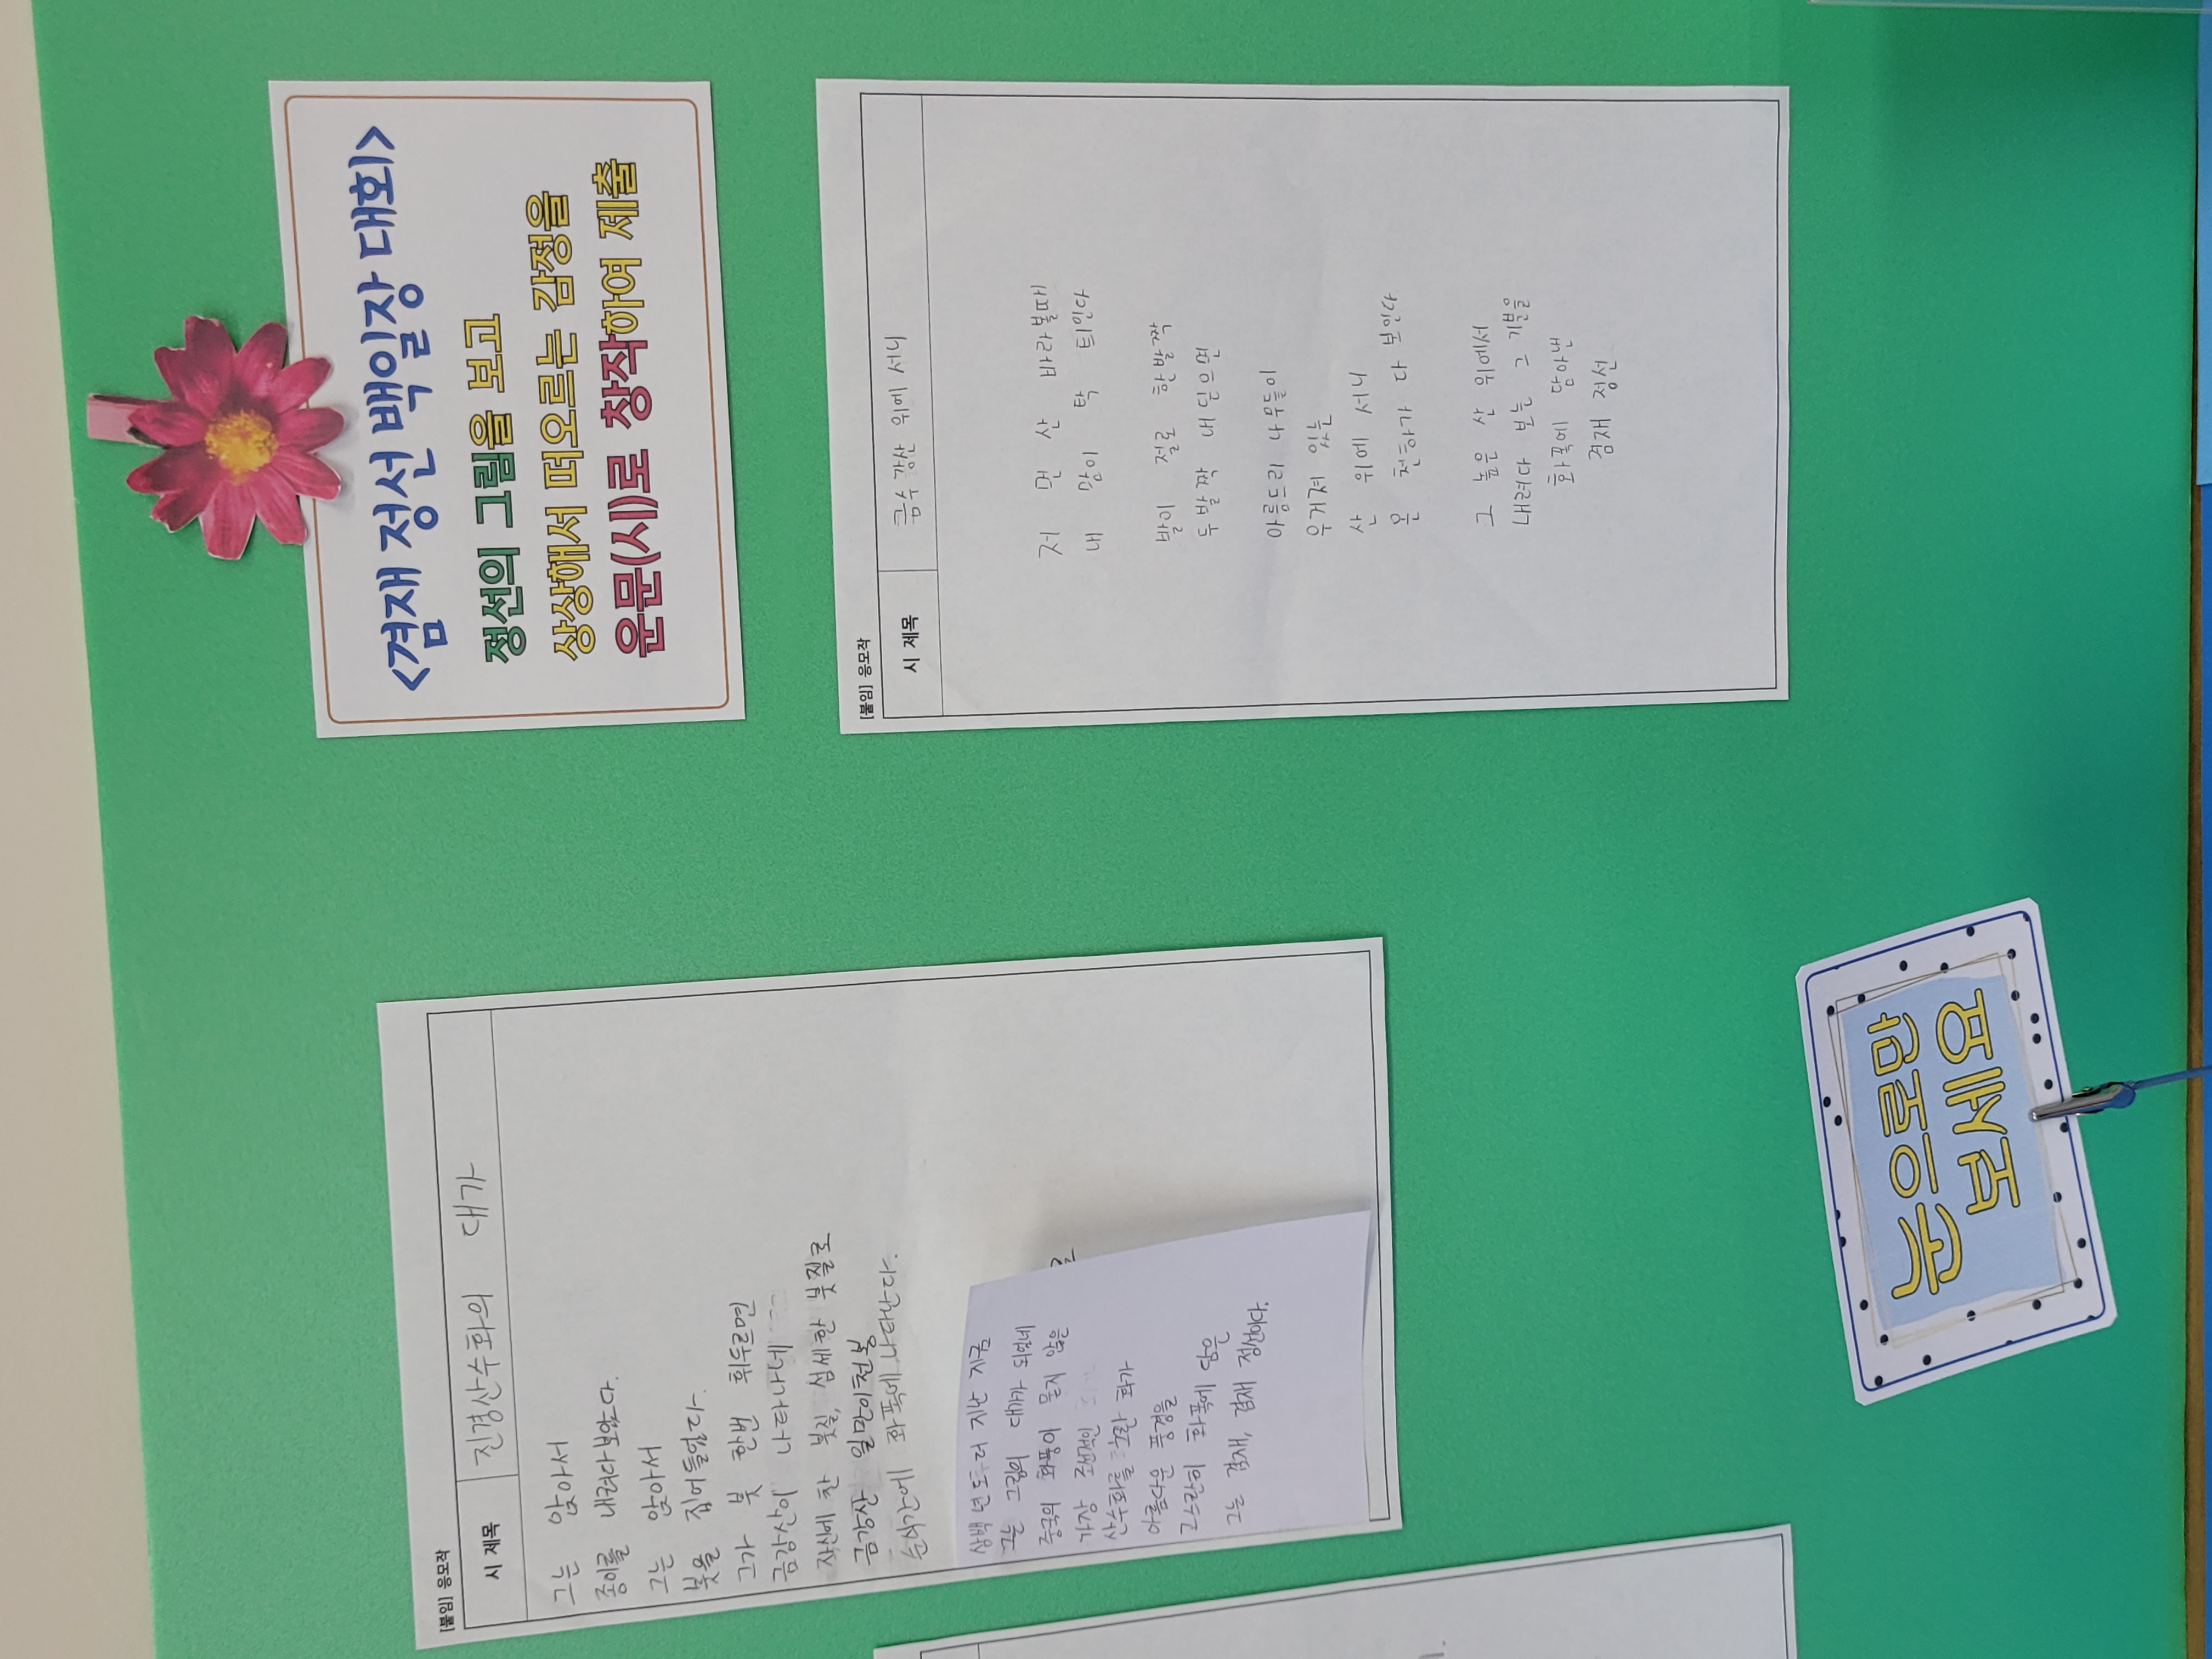 <겸재 정선 백일장 대회>
정선의 그림을 보고
상상해서 떠오르는 감정을
운문(시)로 창작하여 제출
[붙임] 응모작
시 제목
진경산수화의 대가
그는 앉아서
종이를 내려다보았다.
그는 앉아서
붓을 집어들었다.
그가 붓 한번 휘두르면
금강산이 나타나네
자신에 찬 붓질, 섬세한 붓질로
금강산 일만이천봉
순식간에 화폭에 나타난다.
삼백년도 더 지난 지금
그는 그림의 대가가 되었네
중국의 화풍이 묻지 않은
가장 조선적인
산수화를 그린 화가
아름다운 풍경을
고스란히 화폭에 담은
그는 겸재, 겸재 정선이다.
[붙임] 응모작
시 제목
금수강산 위에 서니
저 먼 산 바라볼때
내 맘이 탁 트인다
발이 절로 한발짝
두발짝 내딛으면
아름드리 나무들이
우거져 있는
산 위에 서니
온 천하가 다 보인다
그 높은 산 위에서
내려다 보는 그 기분을
화폭에 담아낸
겸재 정선
눈으로만
보세요